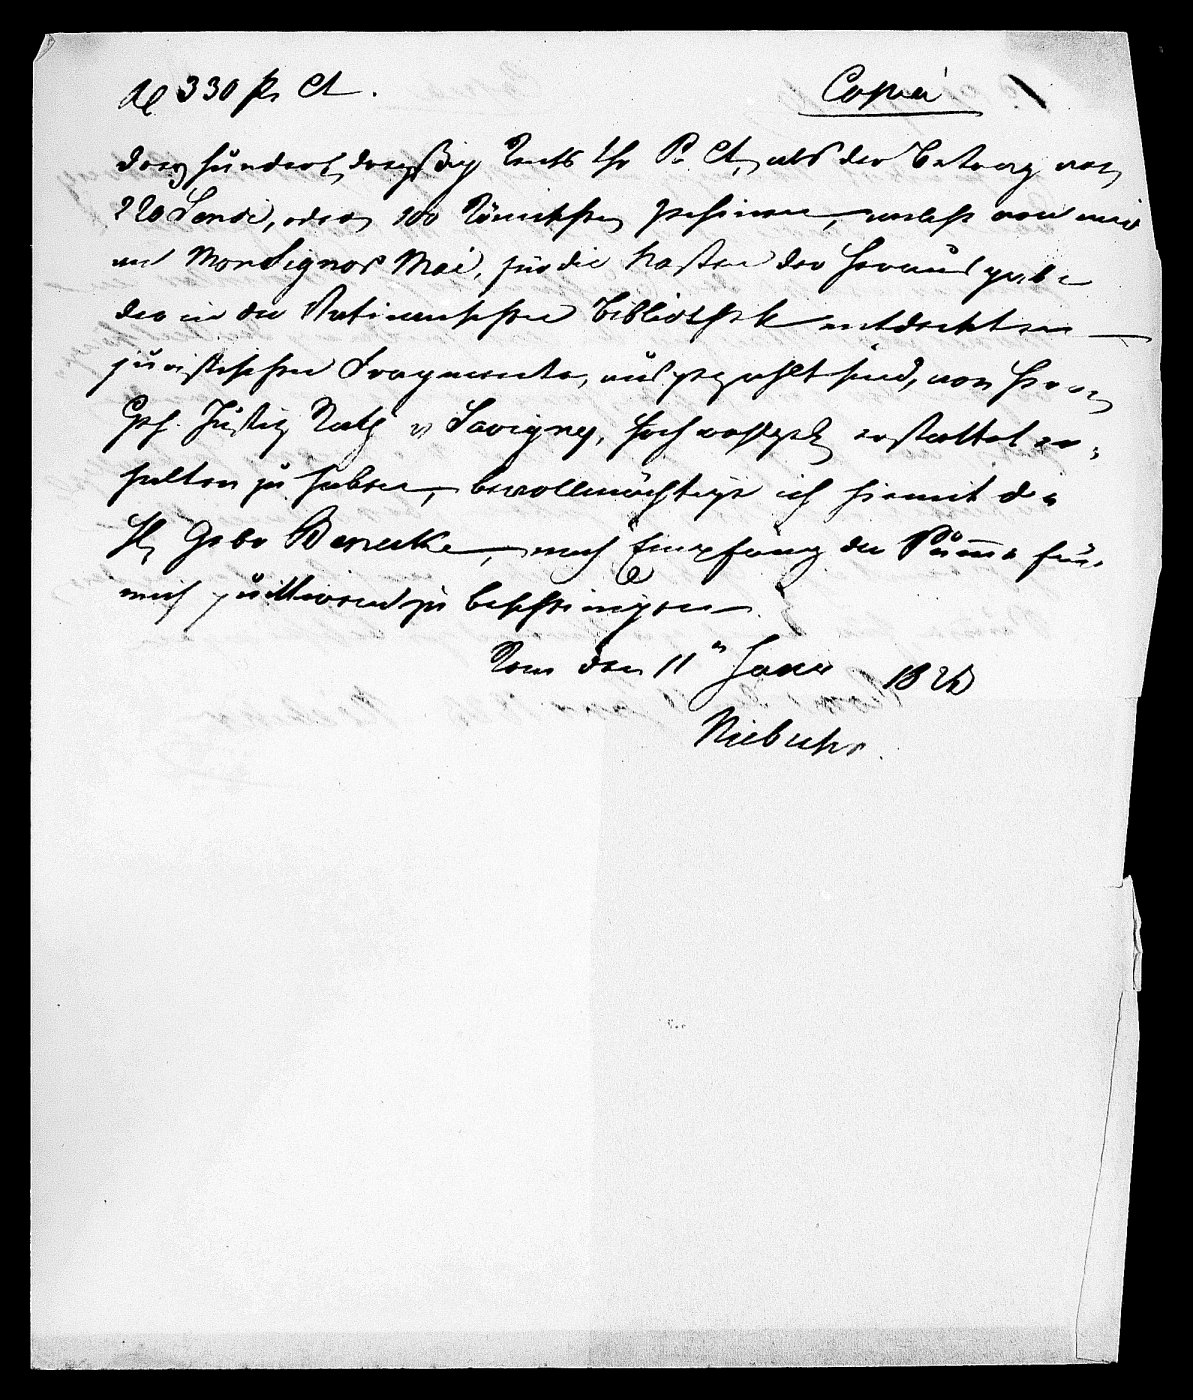 330 Pr Ct.
Copia
drey hundert dreyßig Reichs thr Pr. Ct., als der Betrag von
220 Scudi, oder 100 Römischen Zechinen, welche von mir
an Monsignor Mai, für die Kosten der Herausgabe
der in der Vaticanischen Bibliothek entdeckten
juristischen Fragmente, ausgezahlt sind, von Herrn
Geh. Justiz Rath v Savigny, Hochwohlgeb erstattet er-
halten zu haben, bevollmächtige ich hiemit die
HH Gebr Benecke, nach Empfang der Summe für
mich quittirend zu bescheinigen.
Rom den 11n Janr 182
Niebuhr.